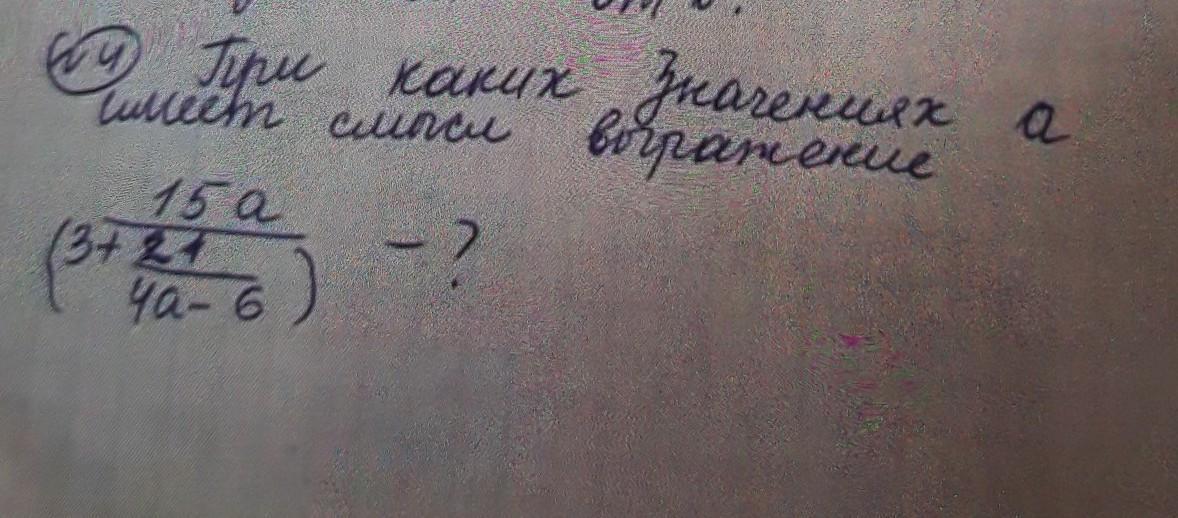 №4 При каких значениях а
имеет смысл выражение
15а
(3+ 21 ) - ?
4а - 6